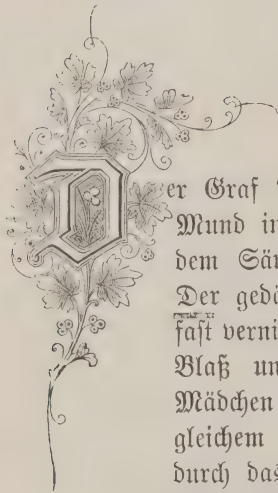 Der Graf
Mund in
dem Sän
Der gedä
fast verni
Blaß un
Mädchen
gleichem
durch das